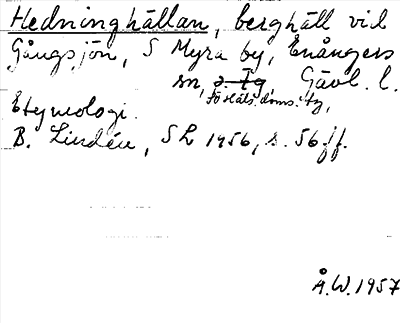 Hedninghällan, berghäll vid
Gångsjön, S Myra by, Enångers
sn, Gävl. l.
Etymologi.
B. Lindén, SL 1956, s. 56 ff.
Å.W. 1957